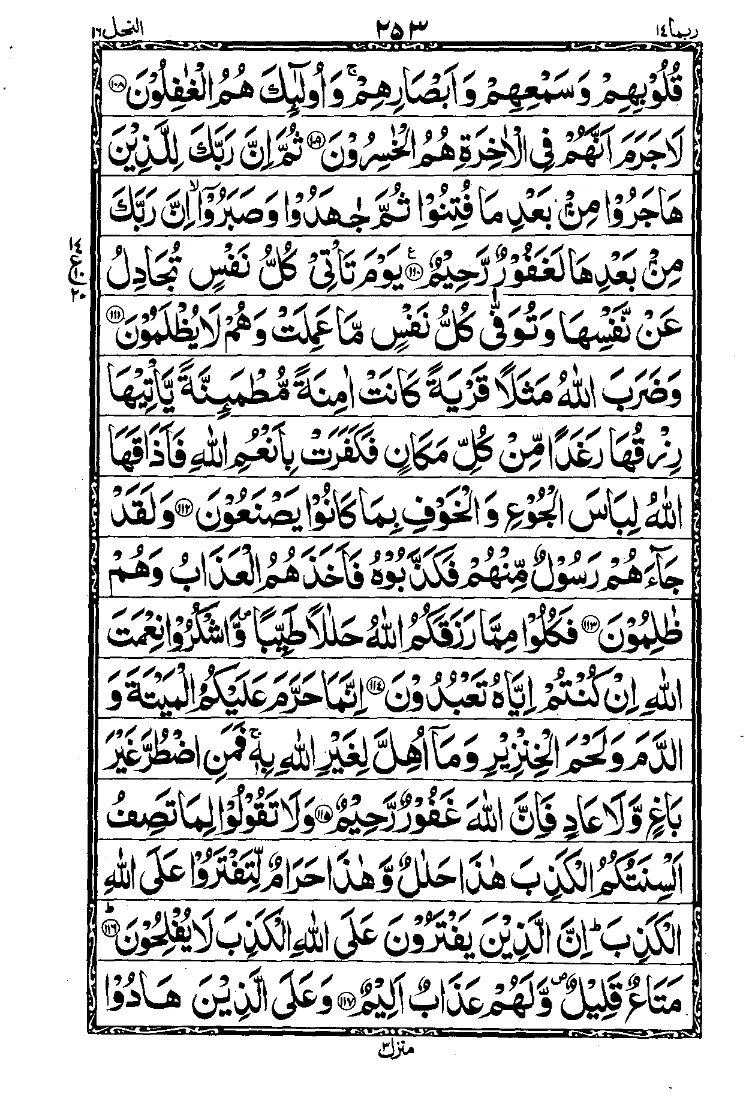 ربما ١٤ ٢٥٣ النحل ١٦
قُلُوْبِهِمْ وَسَمْعِهِمْ وَاَبْصَارِهِمْ ۚ وَاُولٰٓئِكَ هُمُ الْغٰفِلُوْنَ ۝١٠٨
لَاجَرَمَ اَنَّهُمْ فِى الْاٰخِرَةِ هُمُ الْخٰسِرُوْنَ ۝١٠٩ ثُمَّ اِنَّ رَبَّكَ لِلَّذِيْنَ
هَاجَرُوْا مِنْۢ بَعْدِ مَا فُتِنُوْا ثُمَّ جٰهَدُوْا وَصَبَرُوْۤا ۙ اِنَّ رَبَّكَ
مِنْۢ بَعْدِهَا لَغَفُوْرٌ رَّحِيْمٌ ۝١١٠ ع يَوْمَ تَاْتِىْ كُلُّ نَفْسٍ تُجَادِلُ
١٤
ع ١٠
٢٠
عَنْ نَّفْسِهَا وَتُوَفّٰى كُلُّ نَفْسٍ مَّا عَمِلَتْ وَهُمْ لَا يُظْلَمُوْنَ ۝١١١
وَضَرَبَ اللّٰهُ مَثَلًا قَرْيَةً كَانَتْ اٰمِنَةً مُّطْمَىِٕنَّةً يَّاْتِيْهَا
رِزْقُهَا رَغَدًا مِّنْ كُلِّ مَكَانٍ فَكَفَرَتْ بِاَنْعُمِ اللّٰهِ فَاَذَاقَهَا
اللّٰهُ لِبَاسَ الْجُوْعِ وَالْخَوْفِ بِمَا كَانُوْا يَصْنَعُوْنَ ۝١١٢ وَلَقَدْ
جَآءَهُمْ رَسُوْلٌ مِّنْهُمْ فَكَذَّبُوْهُ فَاَخَذَهُمُ الْعَذَابُ وَهُمْ
ظٰلِمُوْنَ ۝١١٣ فَكُلُوْا مِمَّا رَزَقَكُمُ اللّٰهُ حَلٰلًا طَيِّبًا ۖ وَّاشْكُرُوْا نِعْمَتَ
اللّٰهِ اِنْ كُنْتُمْ اِيَّاهُ تَعْبُدُوْنَ ۝١١٤ اِنَّمَا حَرَّمَ عَلَيْكُمُ الْمَيْتَةَ وَ
الدَّمَ وَلَحْمَ الْخِنْزِيْرِ وَمَاۤ اُهِلَّ لِغَيْرِ اللّٰهِ بِهٖ ۚ فَمَنِ اضْطُرَّ غَيْرَ
بَاغٍ وَّلَا عَادٍ فَاِنَّ اللّٰهَ غَفُوْرٌ رَّحِيْمٌ ۝١١٥ وَلَا تَقُوْلُوْا لِمَا تَصِفُ
اَلْسِنَتُكُمُ الْكَذِبَ هٰذَا حَلٰلٌ وَّهٰذَا حَرَامٌ لِّتَفْتَرُوْا عَلَى اللّٰهِ
الْكَذِبَ ؕ اِنَّ الَّذِيْنَ يَفْتَرُوْنَ عَلَى اللّٰهِ الْكَذِبَ لَا يُفْلِحُوْنَ ؕ ۝١١٦
مَتَاعٌ قَلِيْلٌ ۖ وَّلَهُمْ عَذَابٌ اَلِيْمٌ ۝١١٧ وَعَلَى الَّذِيْنَ هَادُوْا
منزل ٣